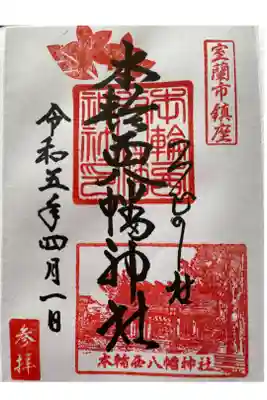 室蘭市鎮座
本輪西八幡神社
令和五年四月一日
参拝
本輪西八幡神社